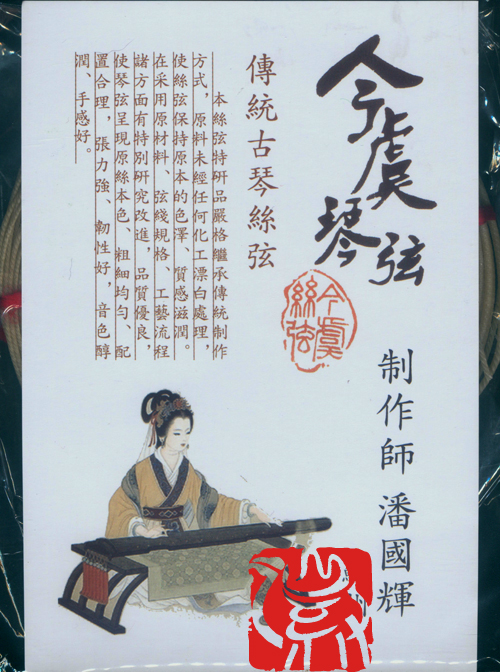 今虞
琴弦
制作師 潘國輝
今虞
絲弦
傳統古琴絲弦
本絲弦特研品嚴格繼承傳統制作
方式，原料未經任何化工漂白處理，
使絲弦保持原本的色澤、質感滋潤。
在采用原材料、弦綫規格、工藝流程
諸方面有特別研究改進，品質優良，
使琴弦呈現原絲本色、粗細均勻、配
置合理，張力強、韌性好，音色醇
潤、手感好。